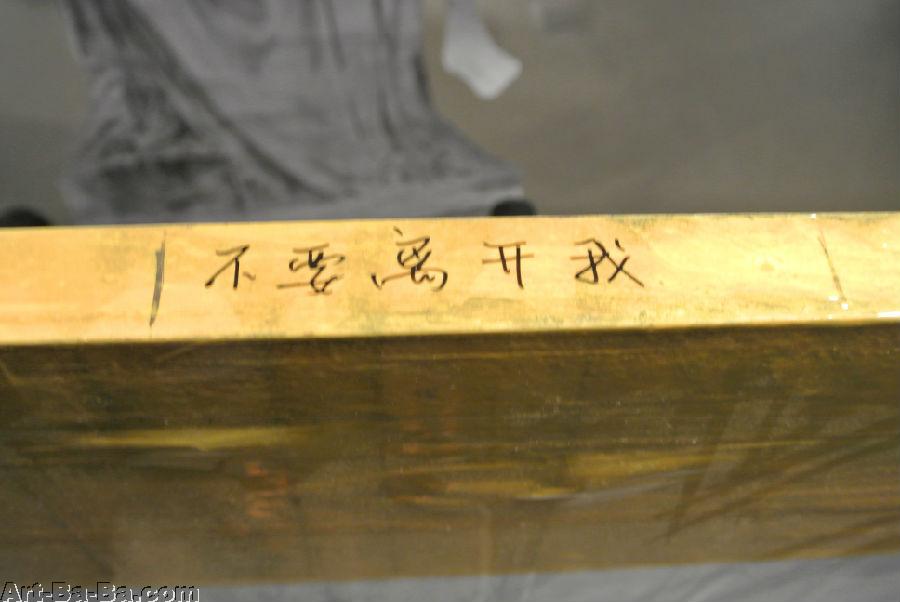 不要离开我
Art-Ba-Ba.com